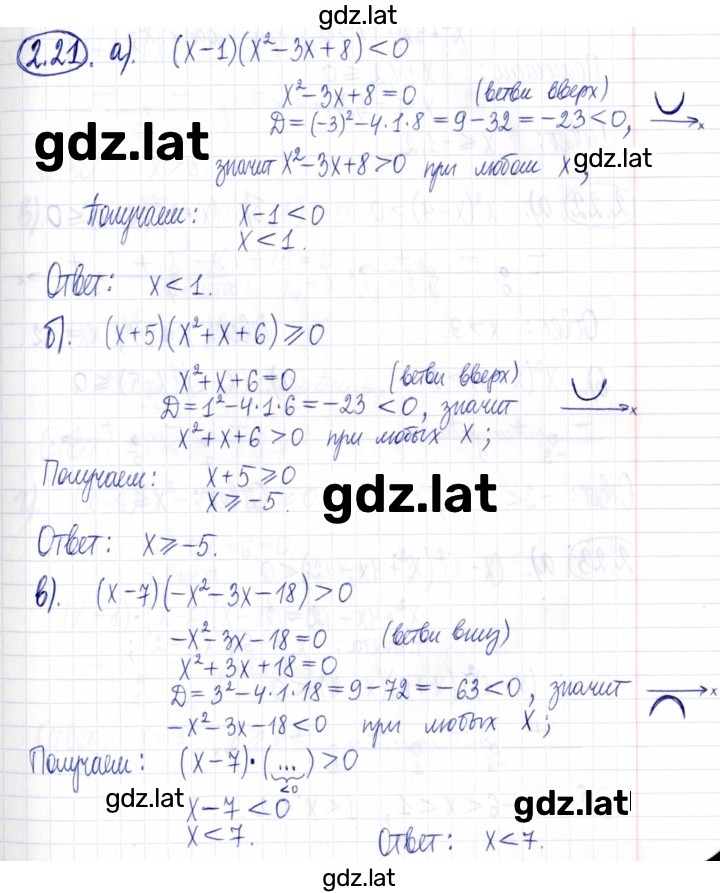 gdz.lat
2.21. а). (x-1)(x²-3x+8)<0
x²-3x+8=0 (ветви вверх)
Д=(-3)²-4·1·8=9-32=-23<0, x
gdz.lat
gdz.lat
значит x²-3x+8>0 при любом x;
Получаем: x-1<0
x<1.
Ответ: x<1.
б). (x+5)(x²+x+6)⩾0
x²+x+6=0 (ветви вверх)
Д=1²-4·1·6=-23<0, значит x
x²+x+6>0 при любых x;
Получаем: x+5⩾0
gdz.lat
x⩾-5.
Ответ: x⩾-5.
в). (x-7)(-x²-3x-18)>0
-x²-3x-18=0 (ветви вниз)
x²+3x+18=0
Д=3²-4·1·18=9-72=-63<0, значит x
-x²-3x-18<0 при любых x;
Получаем: (x-7)·(...)>0
<0
gdz.lat
x-7<0
gdz.lat
x<7. Ответ: x<7.
gdz.lat